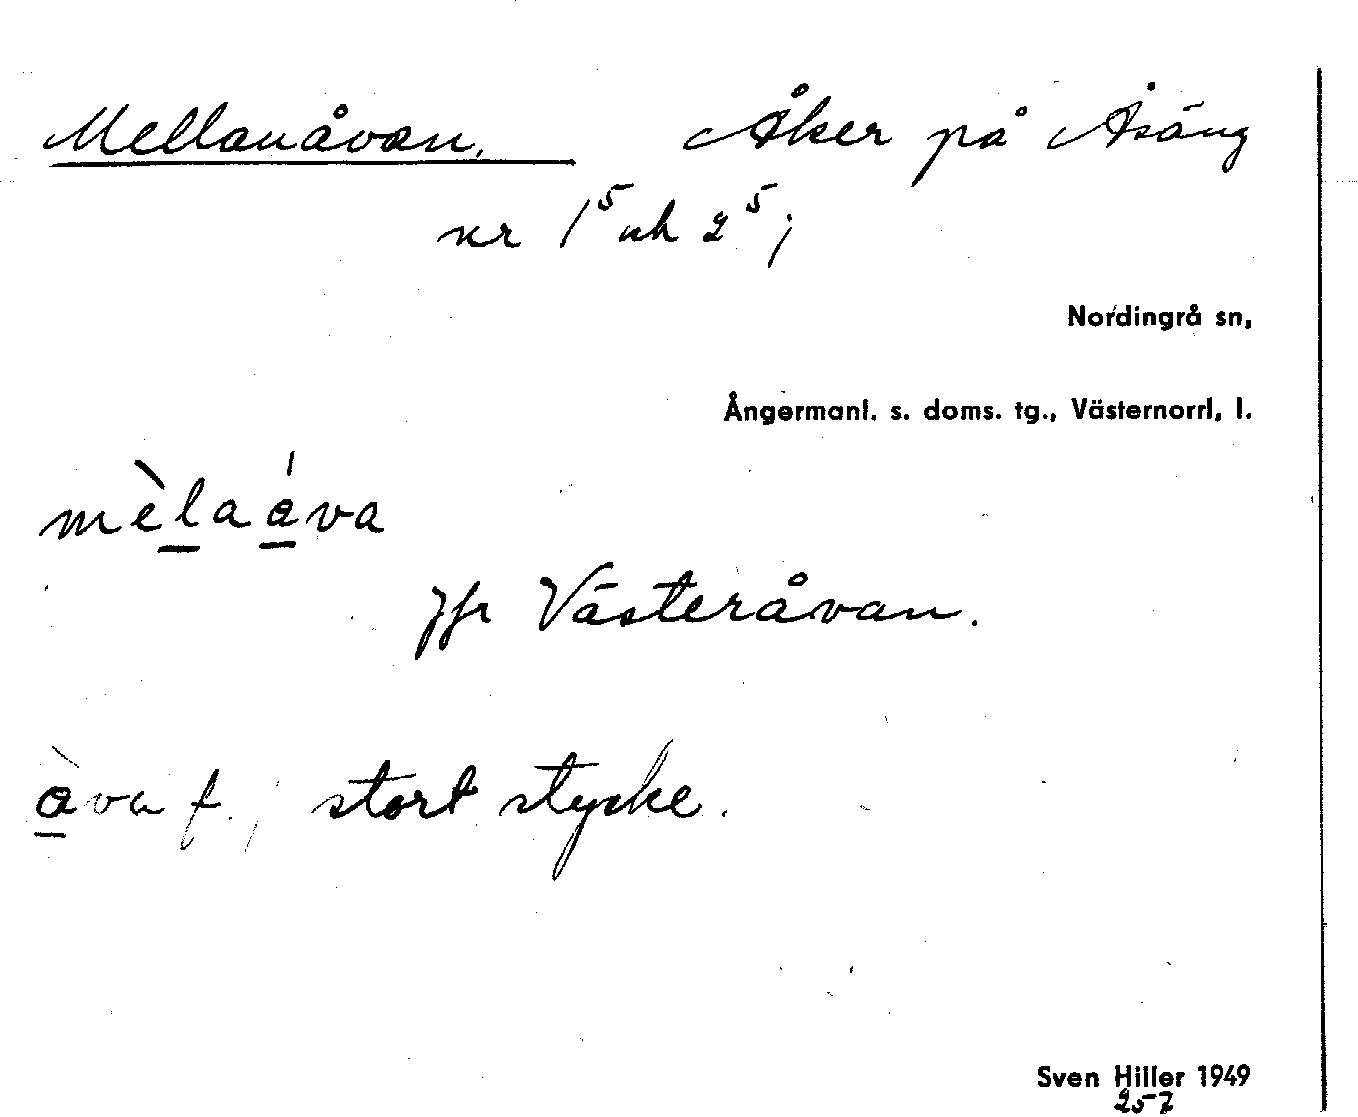 Mellanåvan. Åker på Åsäng
nr 1⁵ och 2⁵;
Nordingrå sn,
Ångermanl. s. doms. tg., Västernorrl. l.
mèlaáva
Jfr Västeråvan.
àva f.; stort stycke.
Sven Hiller 1949
257